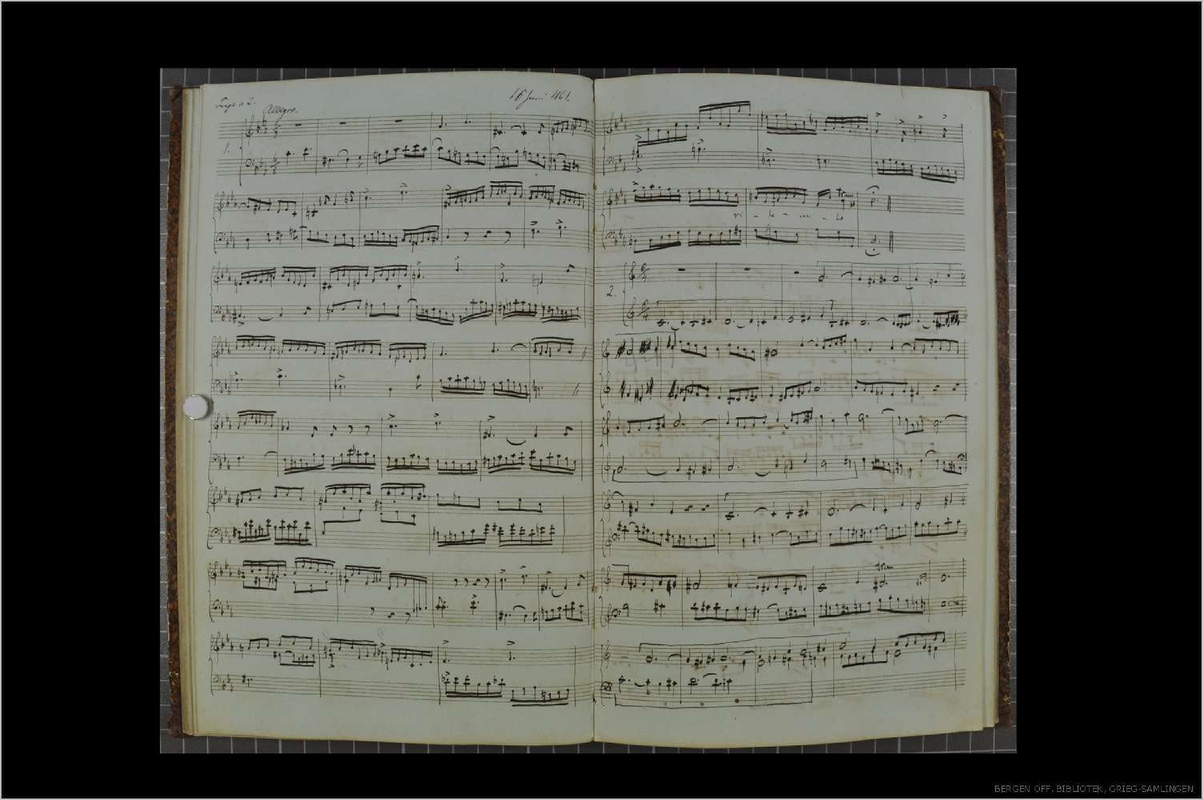 Fuga a 2.
Allegro.
16 Juni 1861.
1.
2.
BERGEN OFF. BIBLIOTEK, GRIEG-SAMLINGEN